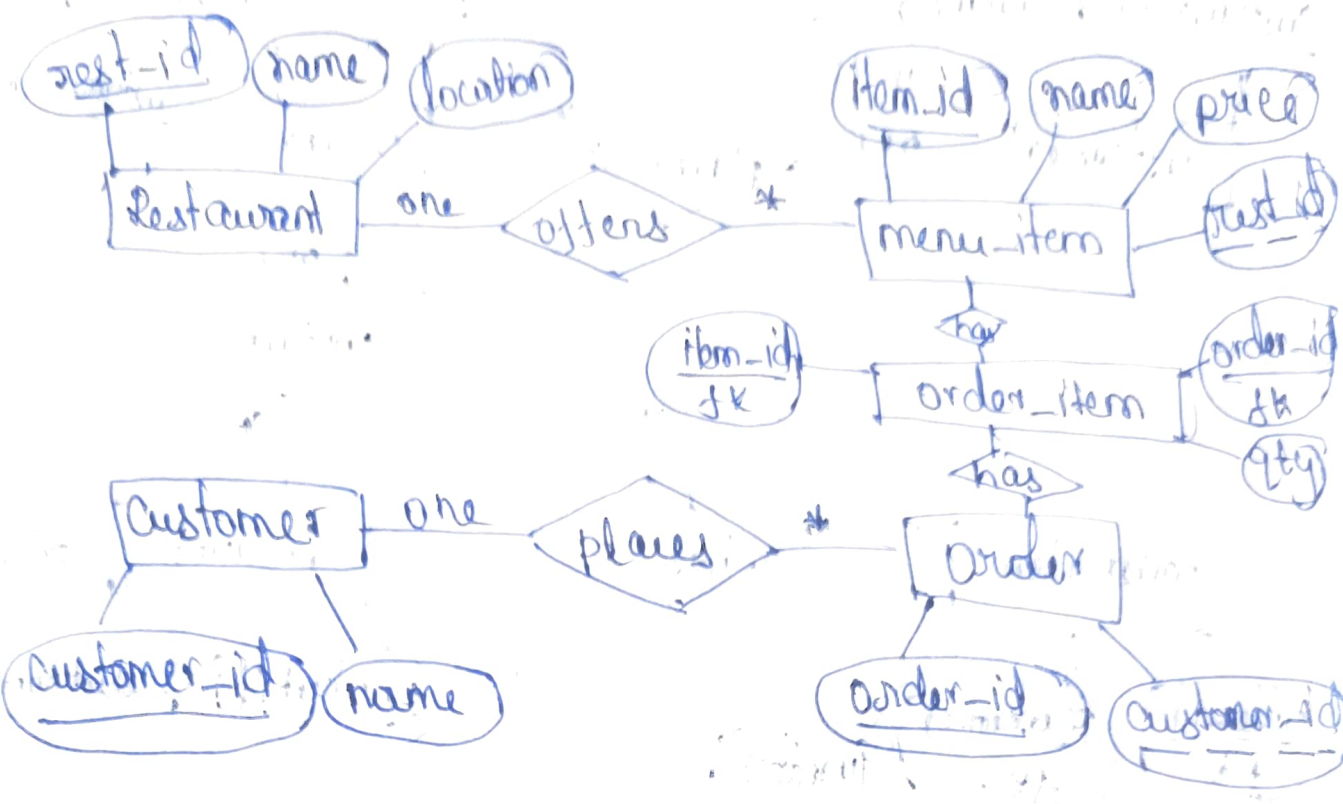 rest_id name location
item_id name price
Restaurant one offers * menu_item
rest_id
has
item_id
fk
order_item
order_id
fk
qty
has
Customer one places * order
customer_id name
order_id customer_id